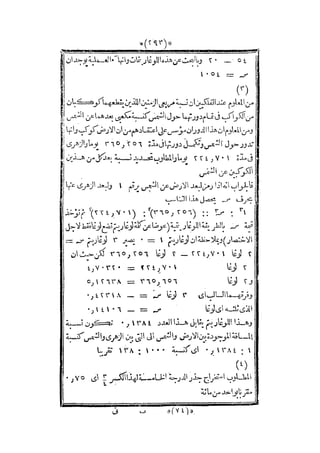 *(٢٩٣)*
٥٤ — ٢٠ وبالبحث عن هذه اللوغاريتمات وانهاء العملية يوجد ان
س = ١٠٥٤
(٣)
من المعلوم عند الفلكيين ان نسبة مربعى الزمنين اللذين يقطعهما كوكبان
من الكواكب فى تمام دورتهما حول الشمس كنسبة مكعبى بعدهما عن الشمس
ومن المعلوم ان هذا الدوران مؤسس على اعتقادهم من ان الارض كوكب وانها
تدور حول الشمس وتكمل دورتها فى مدة ٣٦٥,٢٥٦ يوما والزهرى
فى مدة ٢٢٤,٧٠١ يوما والمطلوب تحديد نسبة بعد كل من هذين
الكوكبين عن الشمس
فالجواب انه اذا رمز لبعد الارض عن الشمس برقم ١ ولبعد الزهرى عنها
بحرف س يحصل هذا التناسب
١ : س :: (٣٦٥,٢٥٦) : (٢٢٤,٧٠١) ثم تؤخذ
قيمة س بالطريقة اللوغاريتمية (عوضا عن كلمة لوغاريتم تضع لوغا فقط لاجل
الاختصار) وبملاحظة ان لوغاريتم ١ = ٠ يصير ٣ لوغاريتم س =
٢ لوغا ٢٢٤,٧٠١ — ٢ لوغا ٣٦٥,٢٥٦ لكن حيث ان
٢ لوغا ٢٢٤,٧٠١ = ٤,٧٠٣٢٠
و٢ لوغا ٣٦٥,٢٥٦ = ٥,١٢٦٣٨
وفرقهما السالب اى ٣ لوغا س = — ٠,٤٢٣١٨
الذى ثلثه اى لوغا س = — ٠,١٤١٠٦
وهذا اللوغاريتم يقابل هذا العدد ٠,١٣٨٤ تكون نسبة
المسافة الموجودة بين الارض والشمس الى التى بين الزهرى والشمس كنسبة
١ : ٠,١٣٨٤ اى كنسبة ١٠٠٠ : ١٣٨ تقريبا
(٤)
المطلوب استخراج جذر الدرجة الخامسة لهذا الكسر ٣/٤ اى ٠,٧٥
مقربا بواحد من مائة
٥(٧٤) ب ق